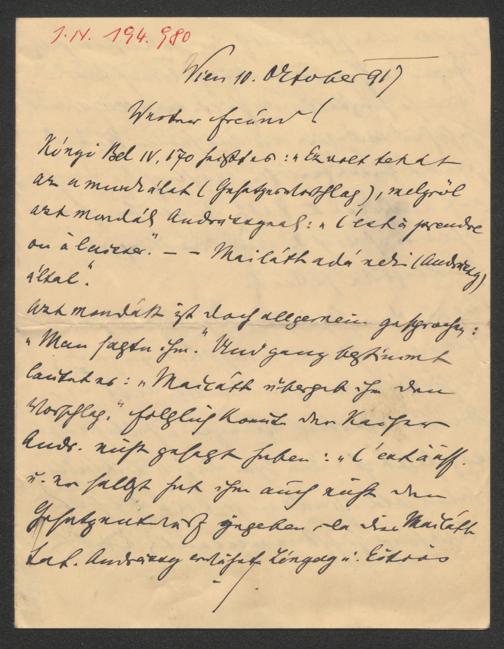 J. N. 194.980
Wien 10. Oktober 917
Werter Freund!
Kónyi Bel IV. 170 heißt es: „Ez volt tehát
az a munkálat (Gesetzesvorschlag), melyről
azt mondák Andrássynak: „C'est à prendre
ou à laisser." – – Mailáth adá neki (Andrássy)
által".
azt mondák ist doch allgemein gesprochen:
„Man sagte ihm." Und ganz bestimmt
lautet es: „Mailáth übergab ihm den
Vorschlag." folglich konnte der Kaiser
Andr. nicht gesagt haben: „C'est à
u. er selbst hat ihm auch nicht den
Gesetzentwurf gegeben da dies Mailáth
tat. Andrássy Lónyay u. Eötvös